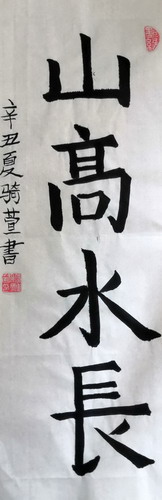 山高水長
辛丑夏骑萱書